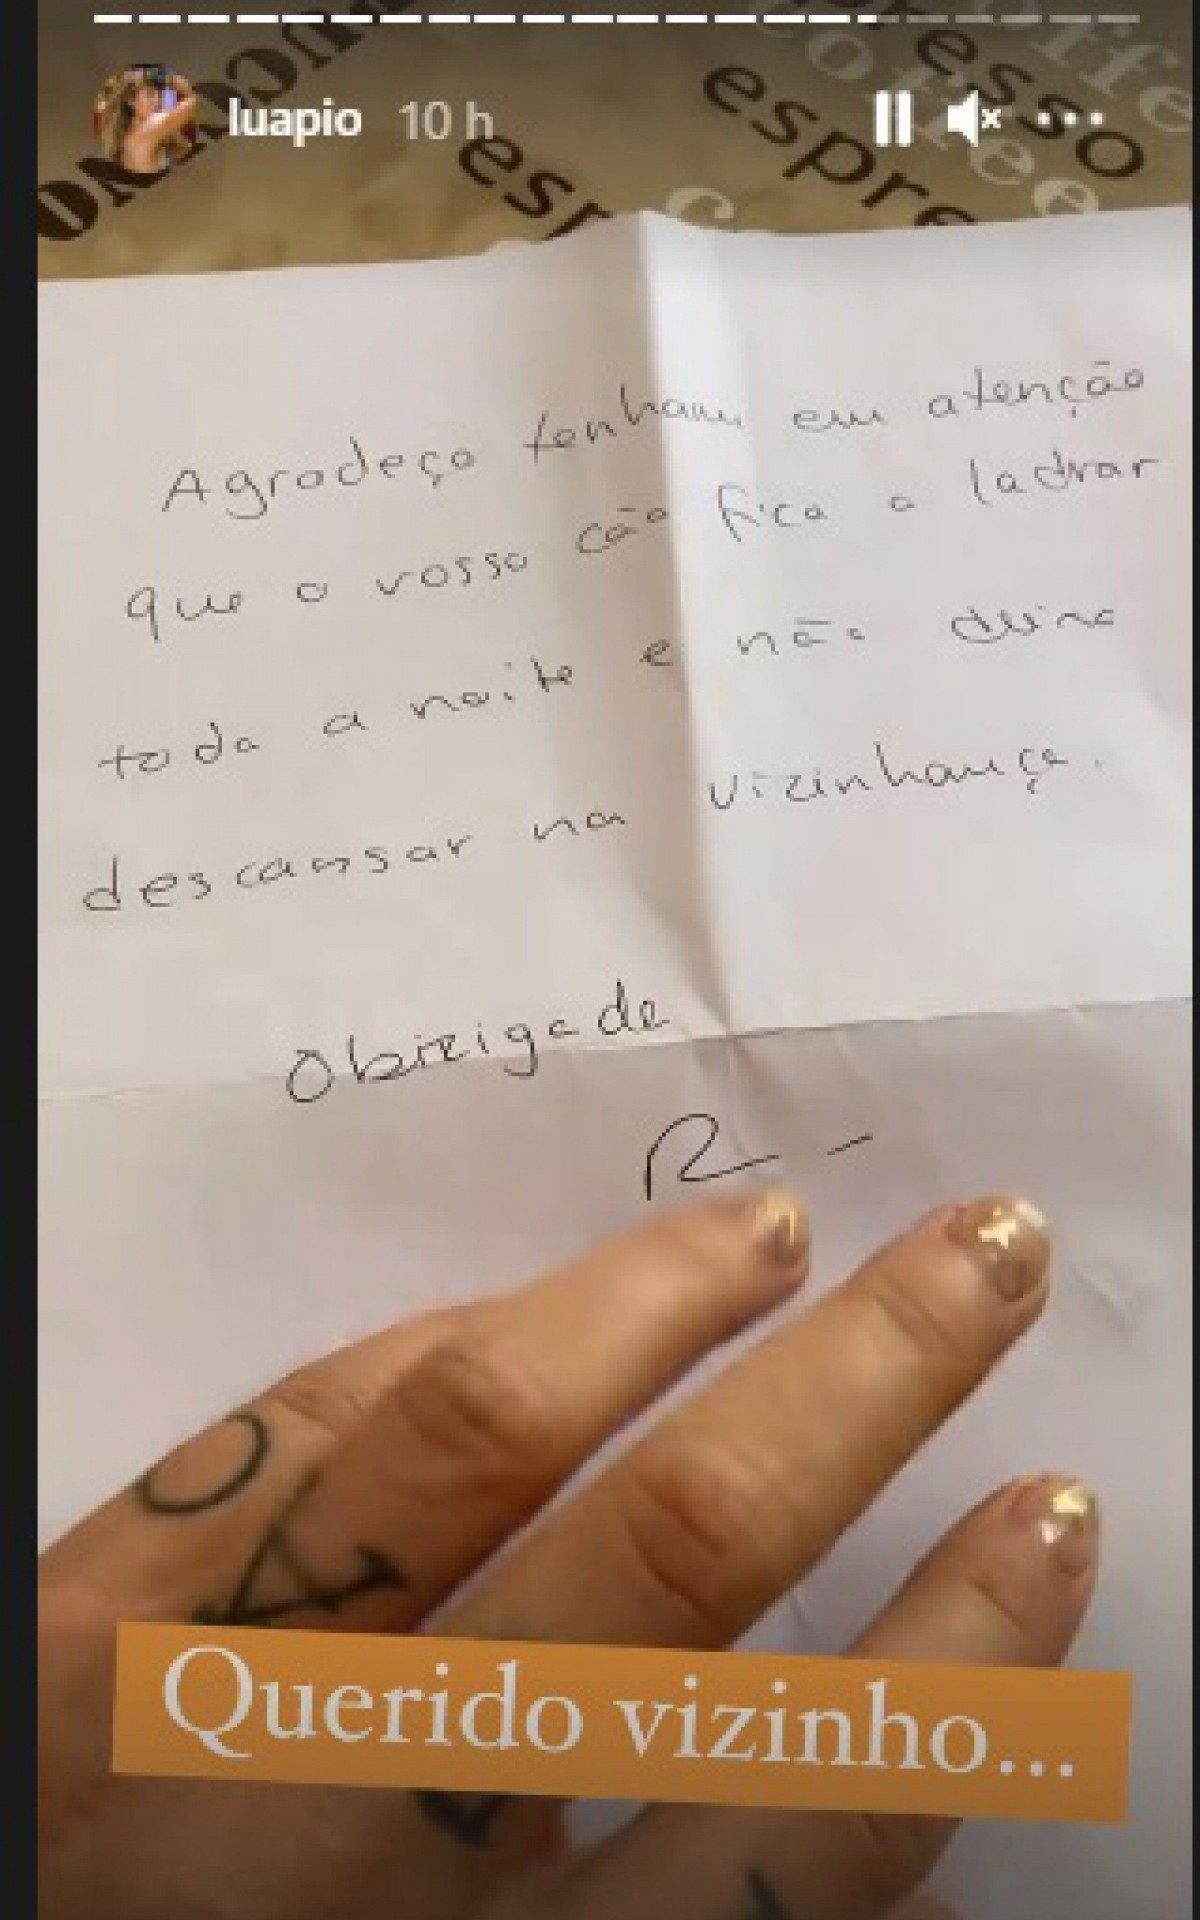 luapio 10 h
CAPPUCCINO
espresso
coffee
espresso
coffee
Agradeço tenham em atenção
que o vosso cão fica a ladrar
toda a noite e não deixa
descansar na vizinhança.
Obrigada
R
Querido vizinho...